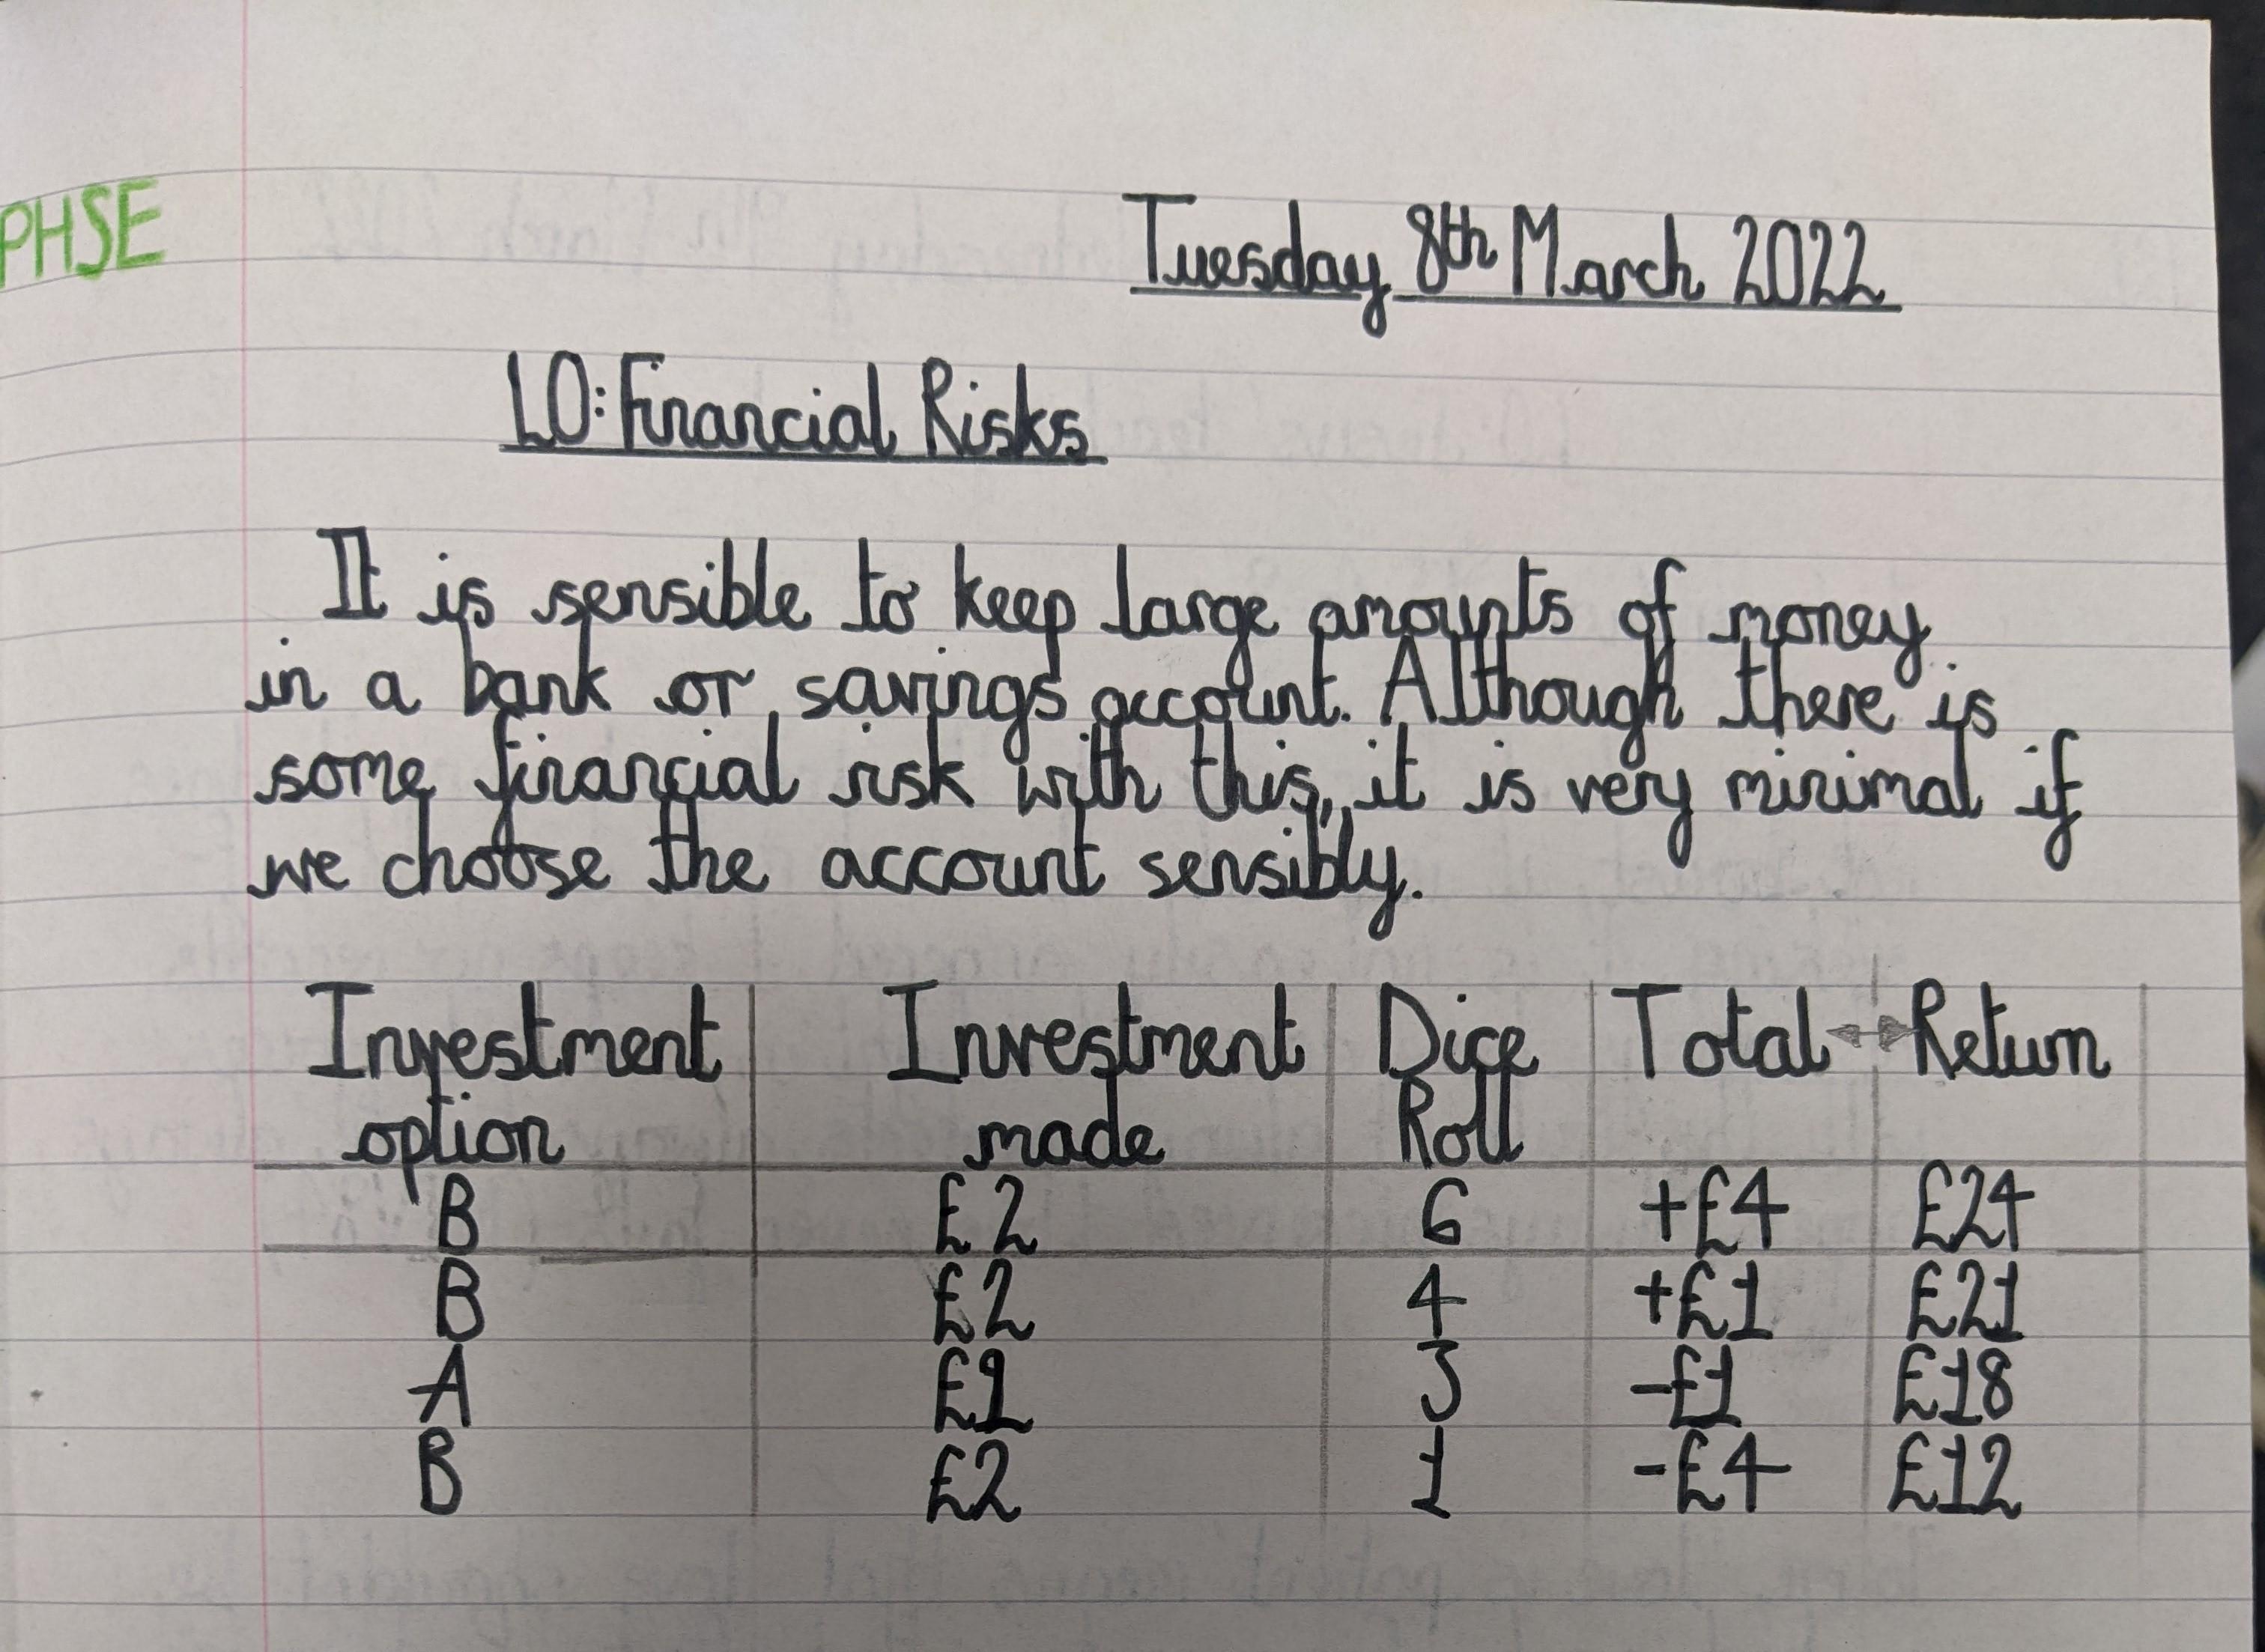 PHSE
Tuesday 8th March 2022
LO: Financial Risks
It is sensible to keep large amounts of money
in a bank or savings account. Although there is
some financial risk with this, it is very minimal if
we choose the account sensibly.
Investment Investment Dice Total Return
option made Roll
B £2 6 +£4 £24
B £2 4 +£1 £21
A 3 -£1 £18
B £2 1 -£4 £12